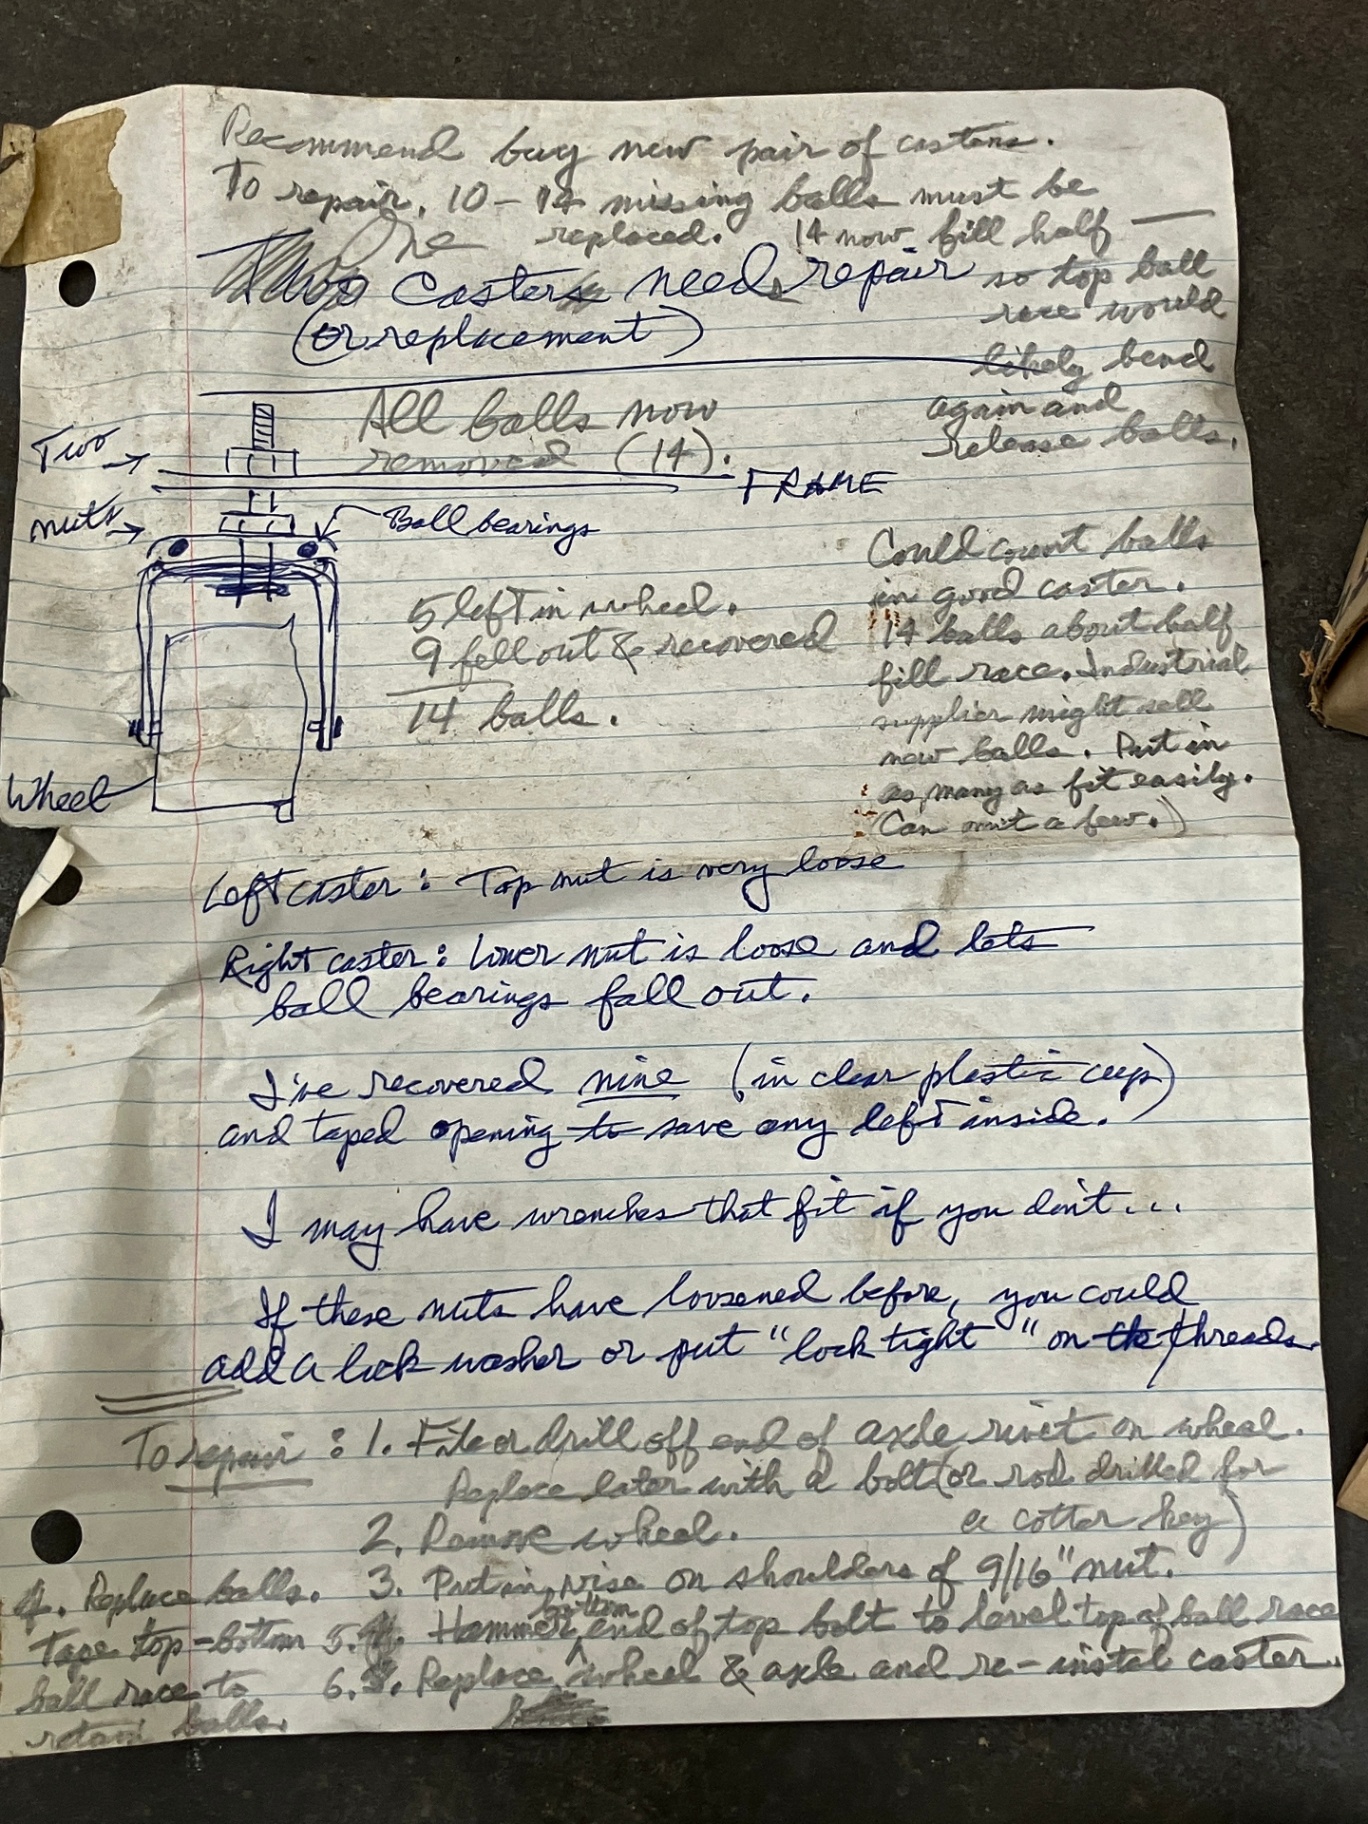 Recommend buy new pair of casters.
To repair, 10-14 missing balls must be
replaced. 14 now fill half —
so top ball
race would
likely bend
again and
release balls.
One
Two Casters need repair
(or replacement)
All balls now
removed (14).
Two
nuts
FRAME
Ball bearings
5 left in wheel.
9 fell out & recovered
14 balls.
Wheel
Could count balls
in good caster.
14 balls about half
fill race. Industrial
supplier might sell
new balls. Put in
as many as fit easily.
Can omit a few.)
Left caster: Top nut is very loose
Right caster: Lower nut is loose and lets
ball bearings fall out.
I've recovered nine (in clear plastic cup)
and taped opening to save any left inside.
I may have wrenches that fit if you don't...
If these nuts have loosened before, you could
add a lock washer or put "lock tight" on the threads.
To repair: 1. File or drill off end of axle rivet on wheel.
Replace later with a bolt (or rod drilled for
a cotter key)
2. Remove wheel.
3. Put in vise on shoulders of 9/16" nut.
4. Replace balls.
Tape top-bottom
ball race to
retain balls.
5. Hammer bottom end of top bolt to level top of ball race
6. Replace wheel & axle and re-instal caster.